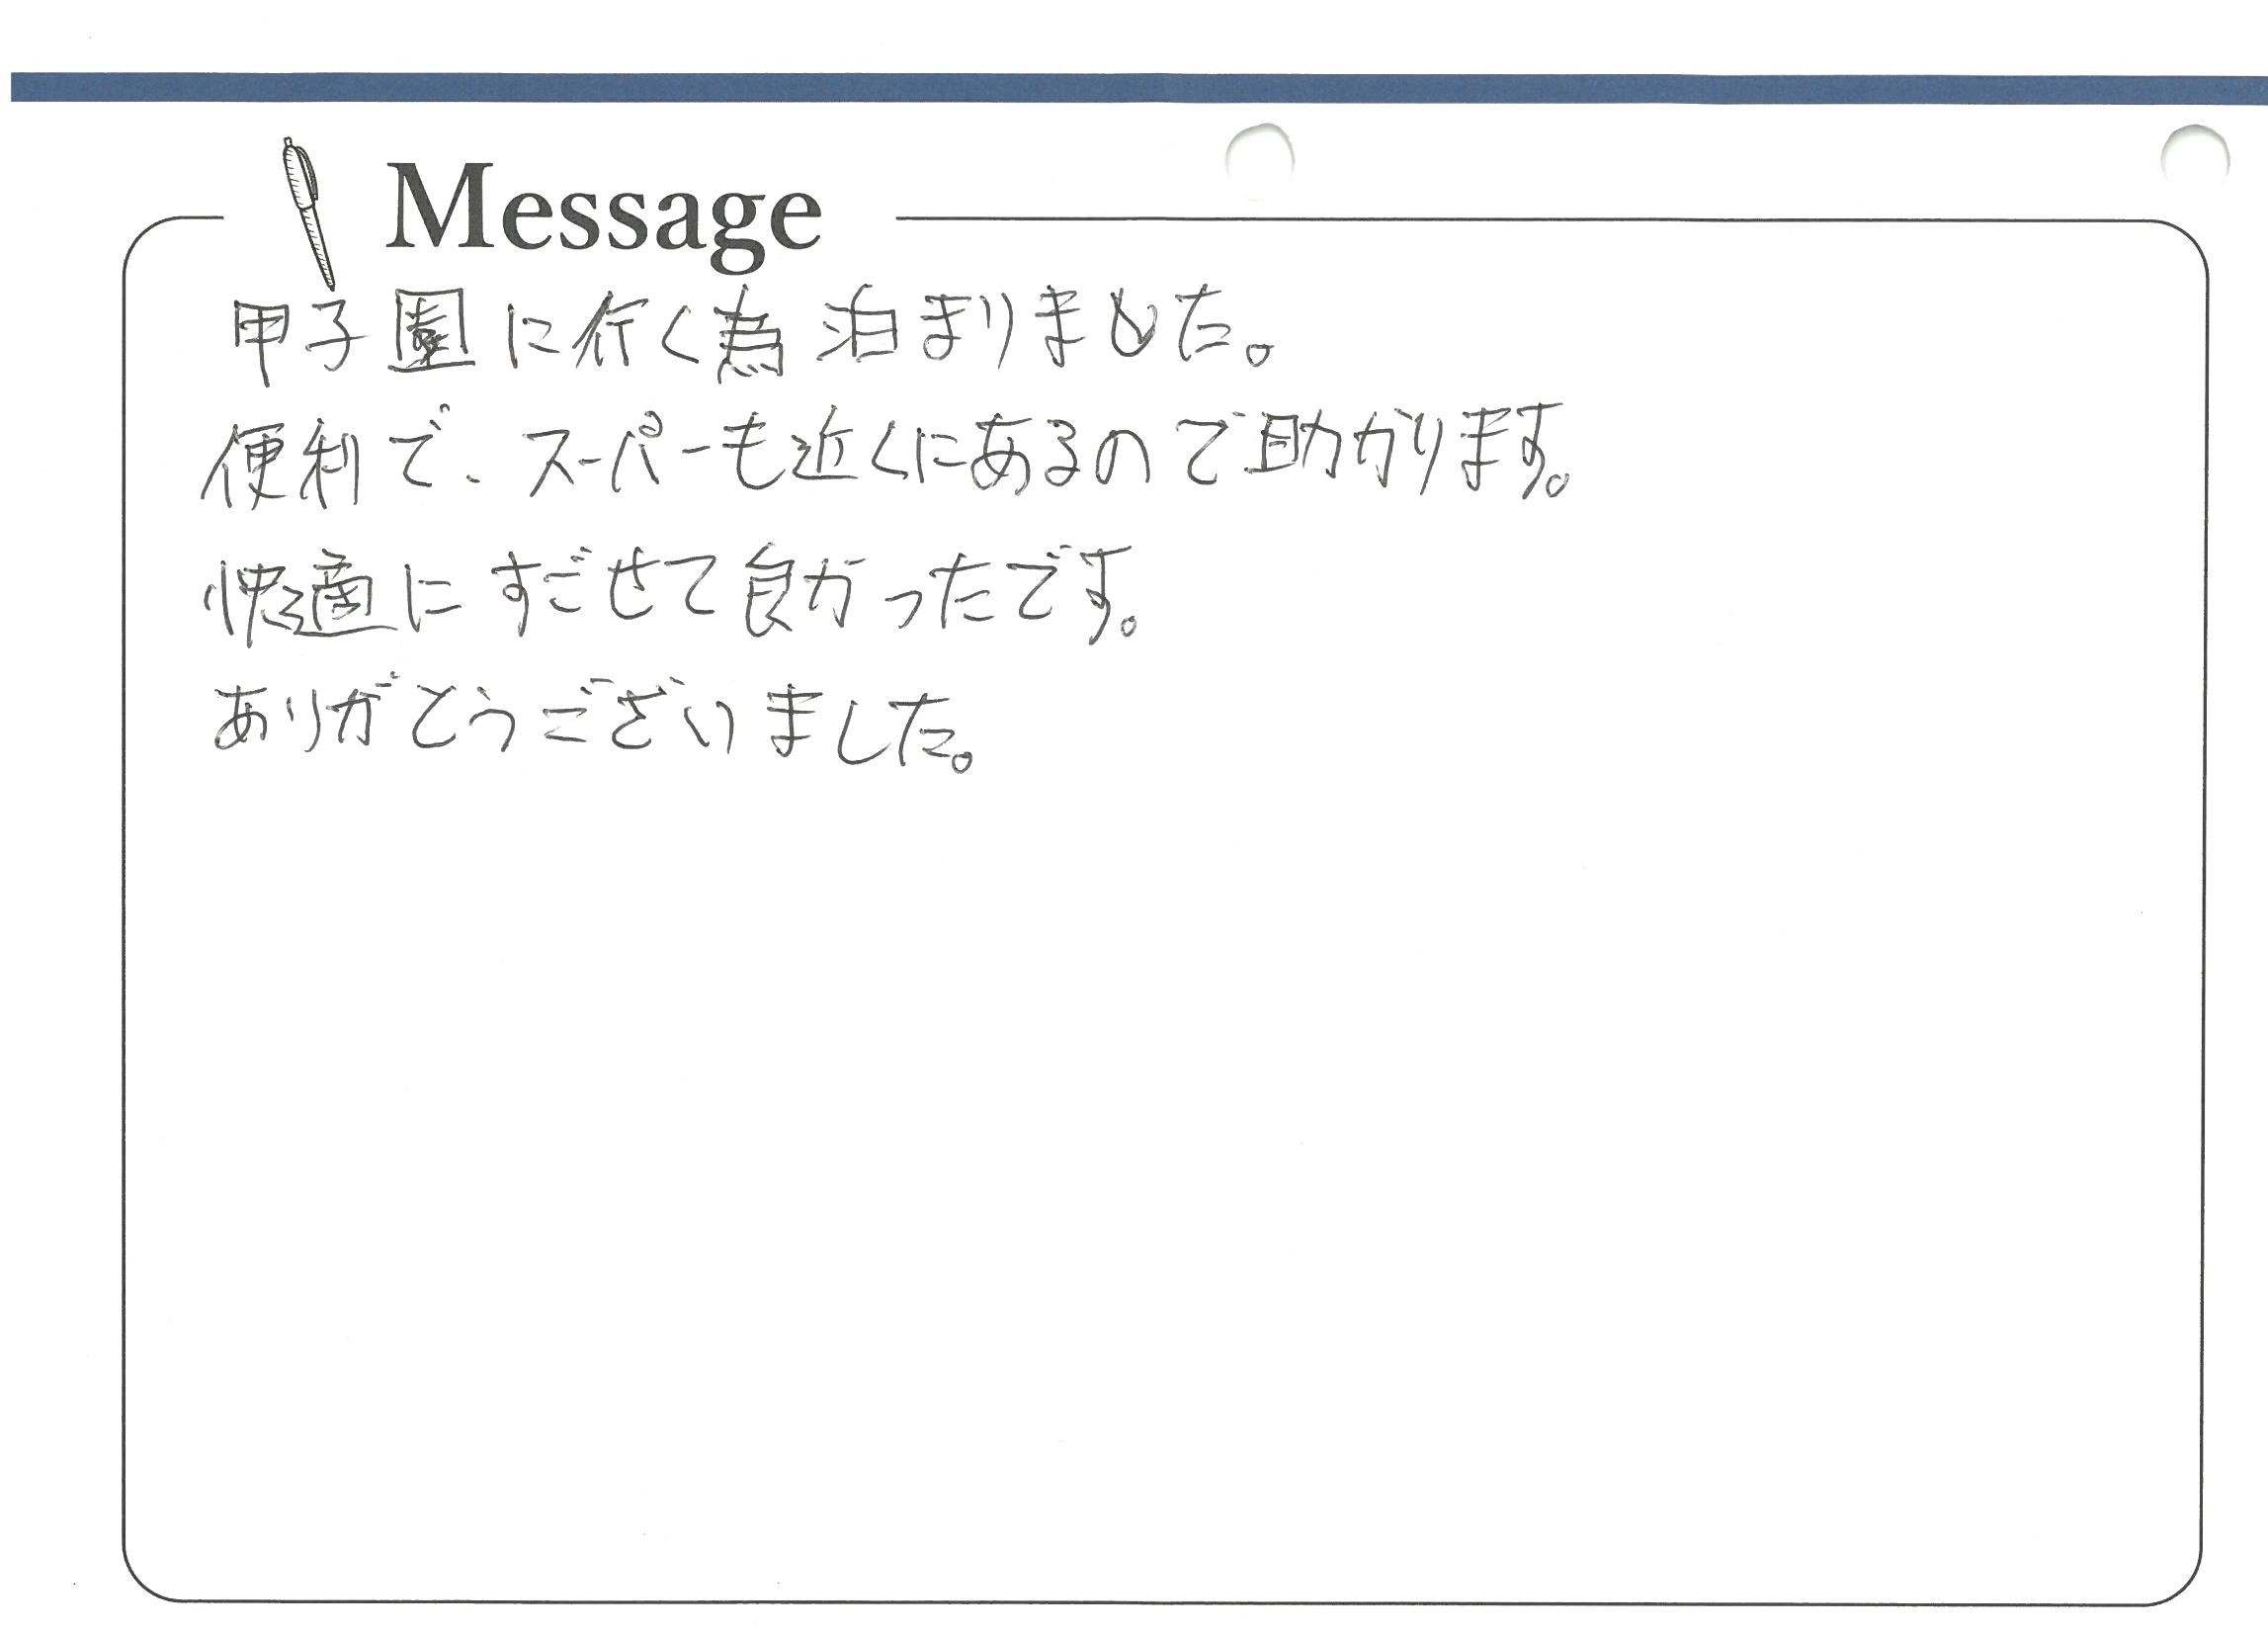 Message
甲子園に行く為 泊まりました。
便利で、スーパーも近くにあるので助かります。
快適に すごせて良かったです。
ありがとうございました。